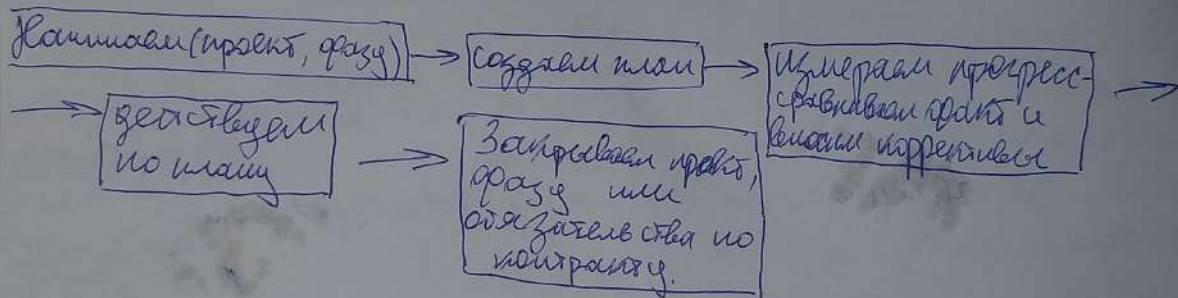 Начинаем (проект, фазу) → создаем план → измеряем прогресс-
сравниваем факт и
вносим коррективы →
→ действуем
по плану → Закрываем проект,
фазу или
обязательства по
контракту.